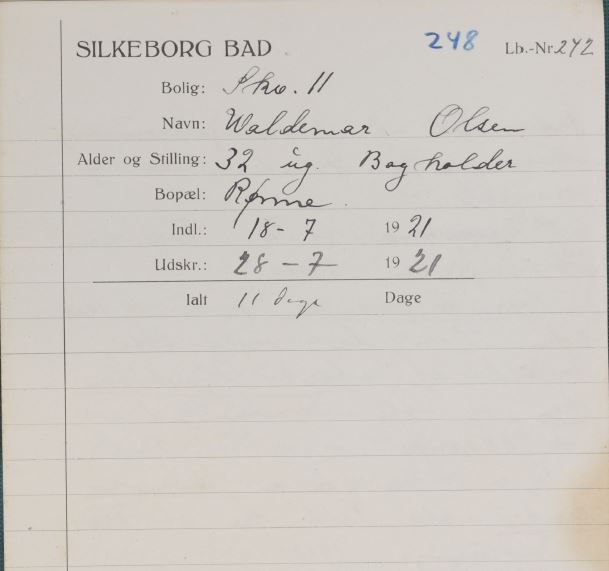 SILKEBORG BAD 248 Lb.-Nr. 272
Bolig: Sko. 11
Navn: Waldemar Olsen
Alder og Stilling: 32 ug. Bogholder
Bopæl: Rønne.
Indl.: 18-7 1921
Udskr.: 28-7 1921
Ialt 11 Dage Dage